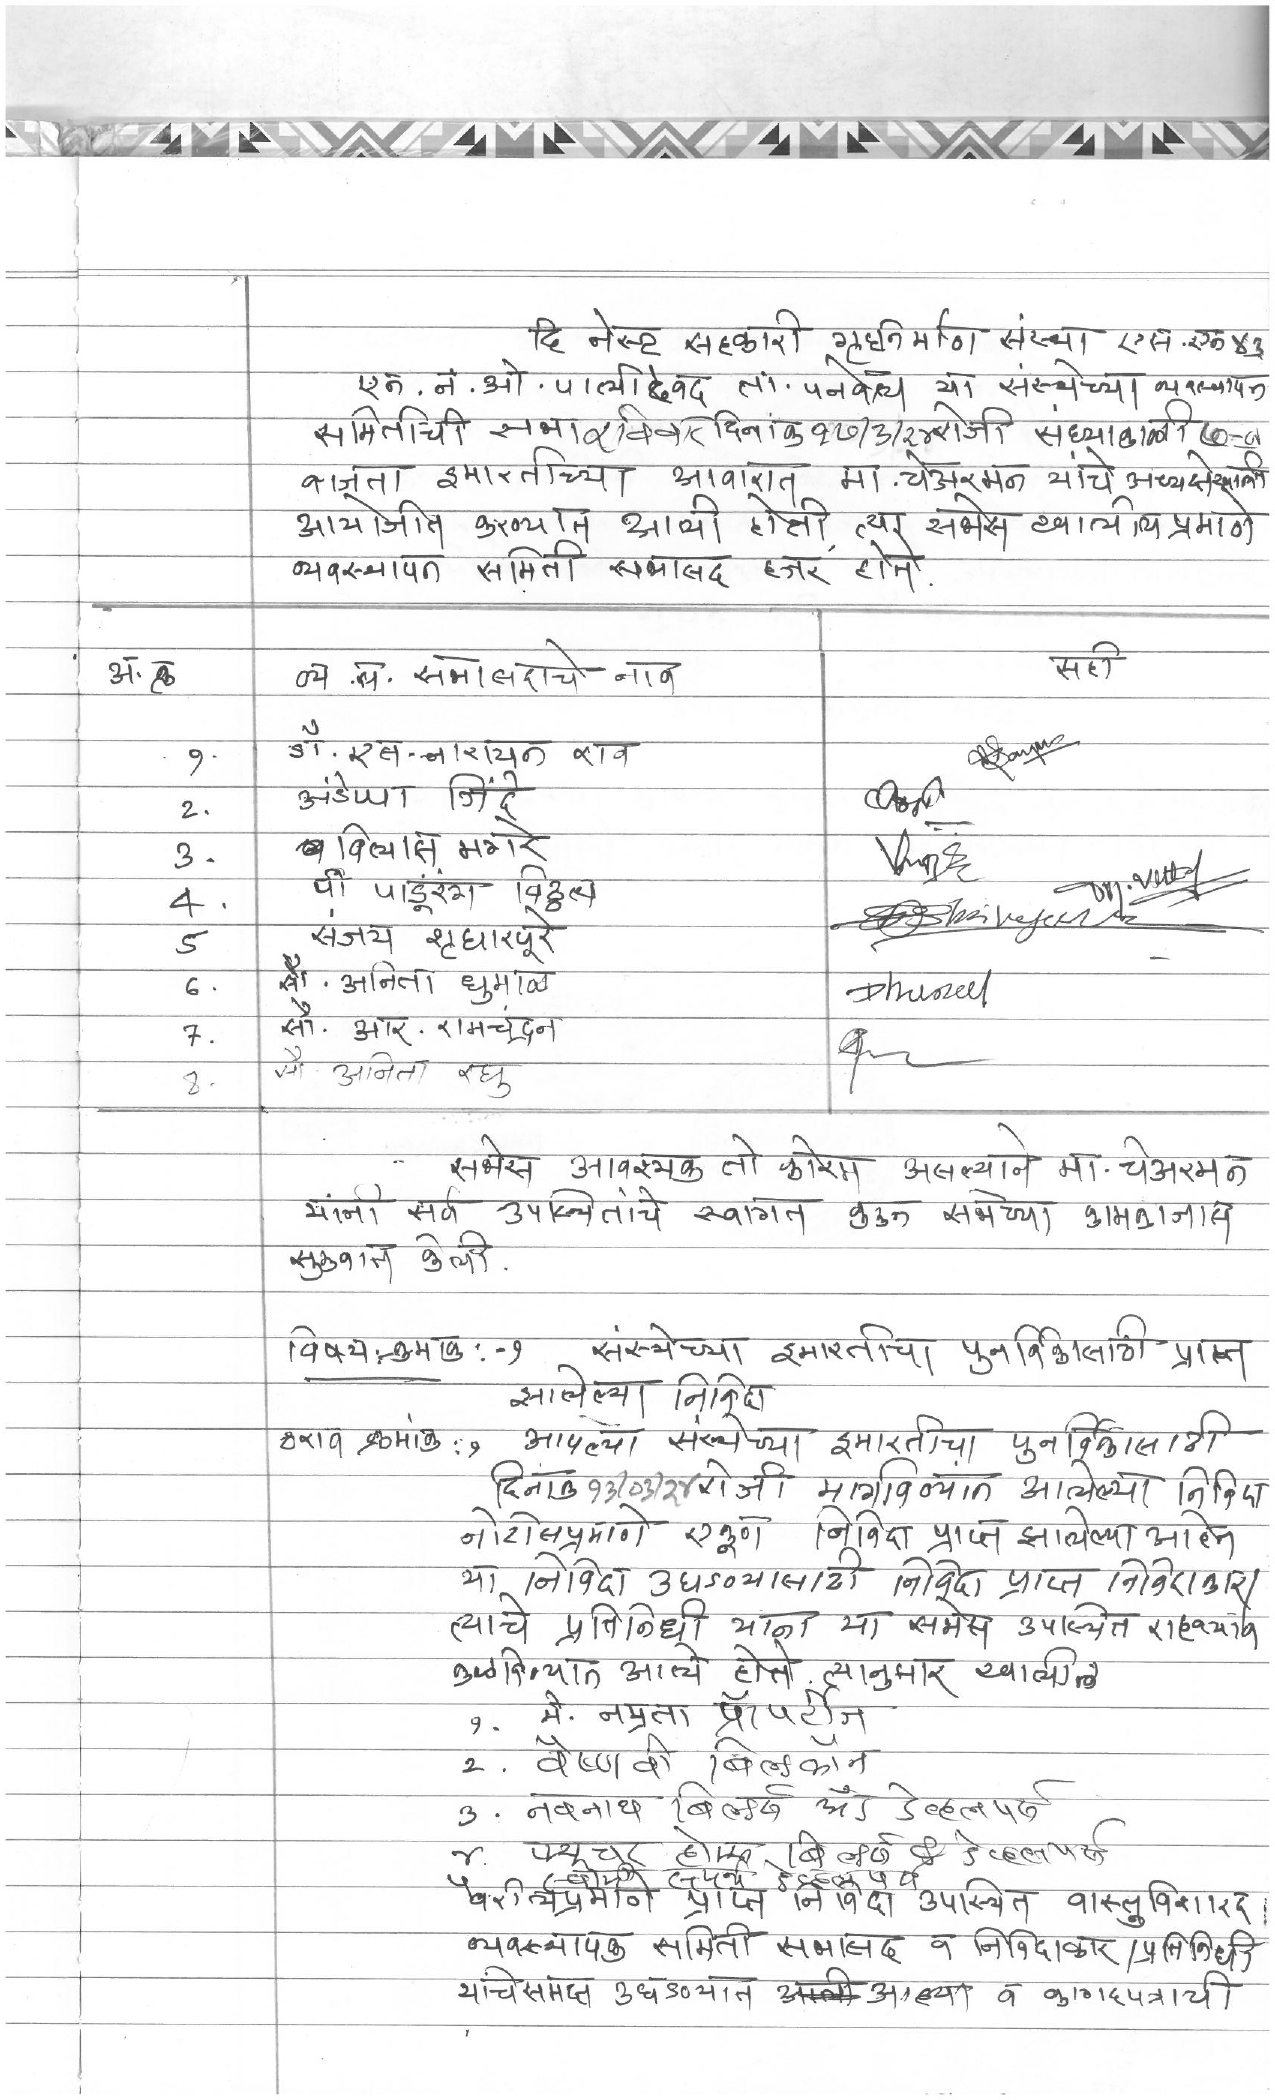 दि नेस्ट सहकारी गृहनिर्माण संस्था एस.एन ४३
एन. नं. ओ. पाली देवद ता. पनवेल या संस्थेच्या व्यवस्थापन
समितीची सभा रविवार दिनांक १७/३/२४ रोजी संध्याकाळी
वाजता इमारतीच्या आवारात मा. चेअरमन यांचे अध्यक्षतेखाली
आयोजीत करण्यात आली होती त्या सभेस खालील प्रमाणे
व्यवस्थापन समिती सभासद हजर होते.
अ. क्र व्य. स. सभासदाचे नाव सही
१. डॉ. एस. नारायन राव
2. अंडेप्पा शिंदे
3. विलास मगरे
4. पी पांडूरंग विठ्ठल
5 संजय शृंधारपूरे
6. सौ. अनिता धुमाळ
7. सौ. आर. रामचंद्रन
8. सौ. अनिता रघु
सभेस आवश्यक तो कोरम असल्याने मा. चेअरमन
यांनी सर्व उपस्थितांचे स्वागत करुन सभेच्या कामकाजास
सुरुवात केली.
विषय क्रमांक :- १ संस्थेच्या इमारतीचा पुनर्विकासाठी प्राप्त
झालेल्या निविदा
ठराव क्रमांक : १ आपल्या संस्थेच्या इमारतीचा पुनर्विकासाठी
दिनांक १३/०३/२४ रोजी मागविण्यात आलेल्या निविदा
नोटीसप्रमाणे एकूण निविदा प्राप्त झालेल्या आहेत
या निविदा उघडण्यासाठी निविदा प्राप्त निविदाकार/
त्याचे प्रतिनिधी यांना या सभेस उपस्थित राहण्याचे
कळविण्यात आले होते. त्यानुसार खालील
१. मे. नम्रता प्रॉपर्टीज
2. वैष्णवी बिल्डकॉन
३. नवनाथ बिल्डर्स अँड डेव्हलपर्स
४. फ्यूचर होम्स बिल्डर्स & डेव्हलपर्स
५ डेव्हलपर्स
वरीलप्रमाणे प्राप्त निविदा उपस्थित वास्तुविशारद,
व्यवस्थापक समिती सभासद व निविदाकार/प्रतिनिधी
यांचेसमक्ष उघडण्यात आल्या व कागदपत्राची